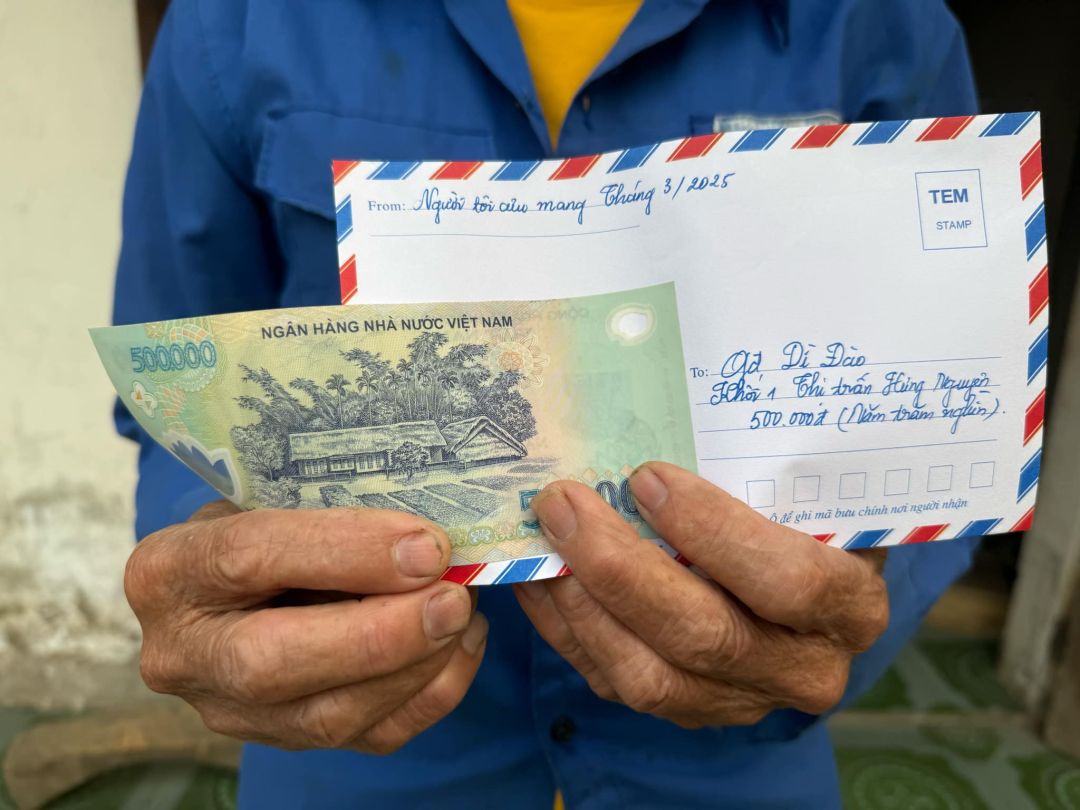 From: Người tôi cưu mang Tháng 3/2025
TEM
STAMP
NGÂN HÀNG NHÀ NƯỚC VIỆT NAM
500.000
To: Gđ, Dì Đào
Khối 1 Thị trấn Hưng Nguyên
500.000đ (Năm trăm nghìn).
Ô để ghi mã bưu chính nơi người nhận